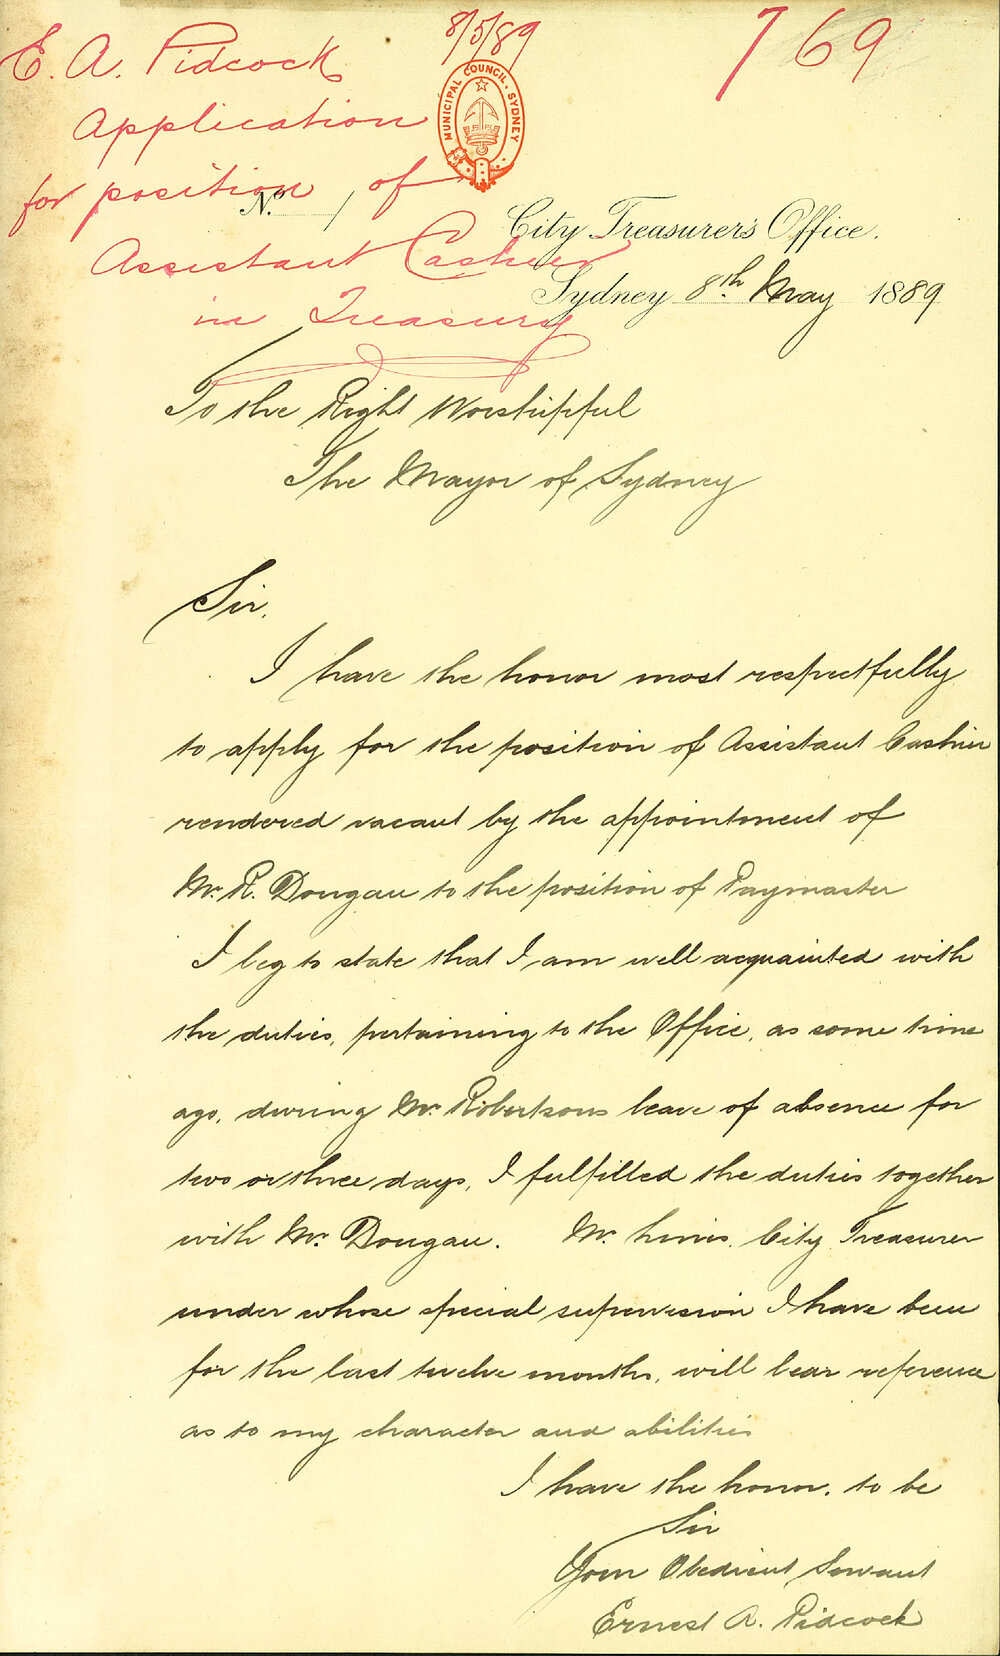 8/5/89
769
E. A. Pidcock
Application
for position of
Assistant Cashier
in Treasury
MUNICIPAL COUNCIL. SYDNEY
No.
City Treasurer's Office.
Sydney 8th May 1889
To the Right Worshipful
The Mayor of Sydney
Sir,
I have the honor most respectfully
to apply for the position of Assistant Cashier
rendered vacant by the appointment of
Mr. R. Dougan to the position of Paymaster
I beg to state that I am well acquainted with
the duties, pertaining to the Office, as some time
ago, during Mr Robertsons leave of absence for
two or three days, I fulfilled the duties together
with Mr. Dougan. Mr. City Treasurer
under whose special supervision I have been
for the last twelve months, will bear reference
as to my character and abilities
I have the honor, to be
Sir
Your Obedient Servant
Ernest A. Pidcock